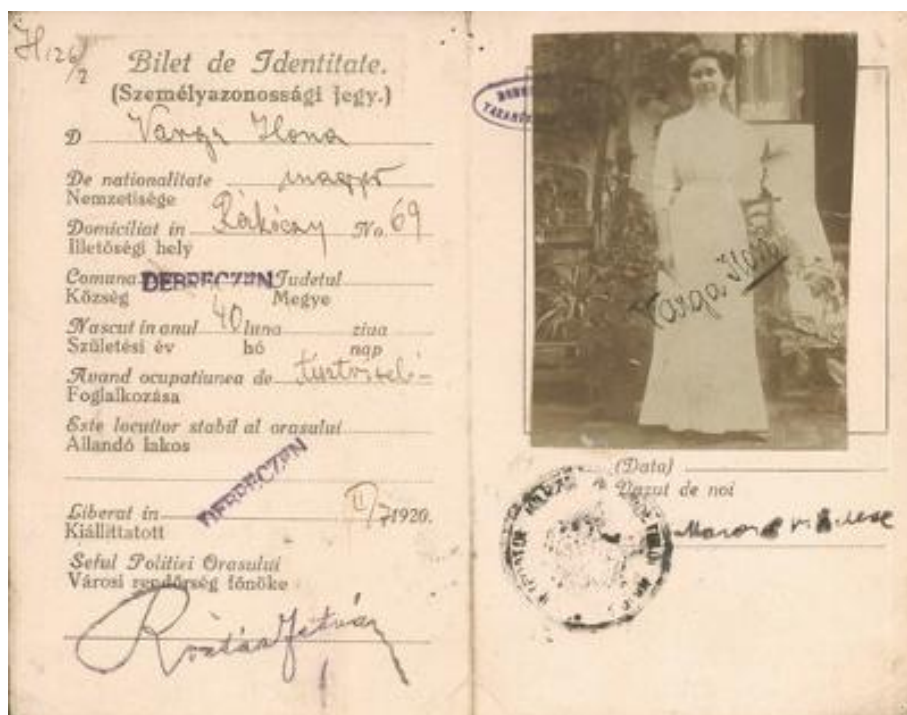 H 126/2
Bilet de Identitate.
(Személyazonossági jegy.)
D Varga Ilona
De nationalitate magyar
Nemzetisége
Domiciliat in Rákóczy No. 69
Illetőségi hely
Comuna DEBRECZEN Judetul
Község Megye
Nascut in anul 40 luna ziua
Születési év hó nap
Avand ocupatiunea de
Foglalkozása
Este locuitor stabil al orasului
Állandó lakos
DEBRECZEN
Liberat in II/7 1920.
Kiállittatott
Seful Politiei Orasului
Városi rendőrség főnöke
István
Varga Ilona
(Data)
Vazut de noi